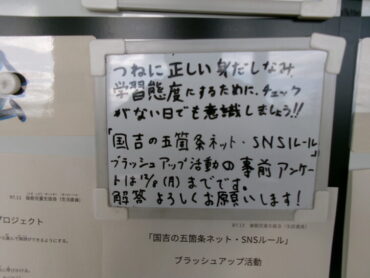 つねに正しい身だしなみ、
学習態度にするために、チェック
がない日でも意識しましょう!!
「国吉の五箇条ネット・SNSルール」
ブラッシュアップ活動の事前アンケー
トは12/8(月)までです。
解答よろしくお願いします!
プロジェクト
「国吉の五箇条ネット・SNSルール」
ブラッシュアップ活動